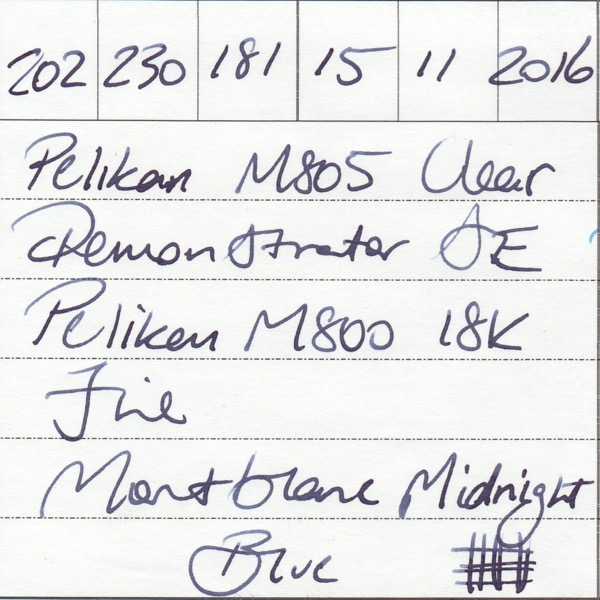 202 230 181 15 11 2016
Pelikan M805 Clear
Demonstrator SE
Pelikan M800 18K
Fine
Montblanc Midnight
Blue